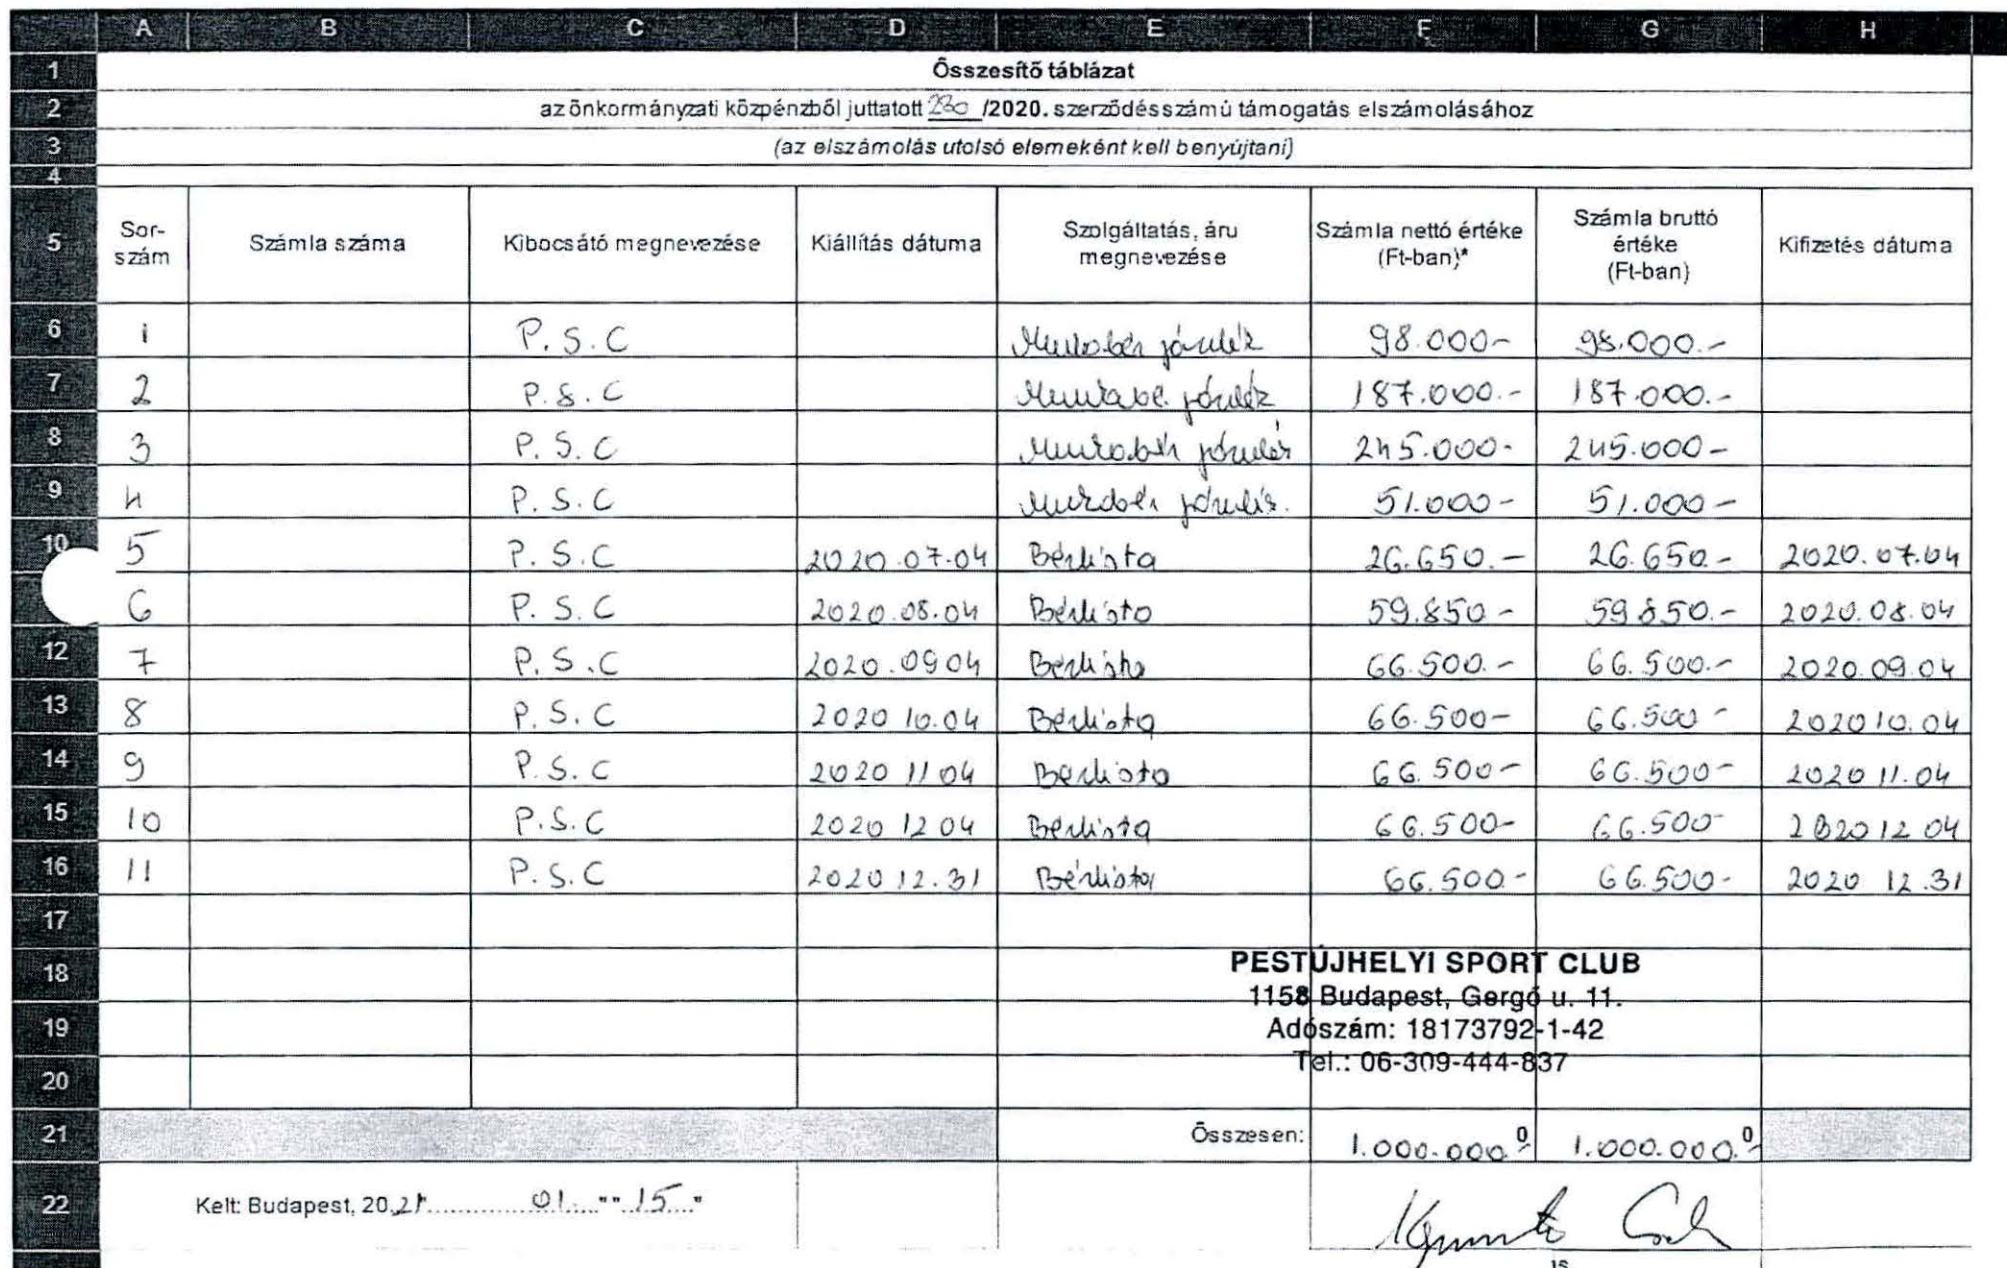 A B C D E F G H
1 Összesítő táblázat
2 az önkormányzati közpénzből juttatott 280 /2020. szerződésszámú támogatás elszámolásához
3 (az elszámolás utolsó elemeként kell benyújtani)
4
5 Sor-szám Számla száma Kibocsátó megnevezése Kiállítás dátuma Szolgáltatás, áru megnevezése Számla nettó értéke (Ft-ban)* Számla bruttó értéke (Ft-ban) Kifizetés dátuma
6 1 P. S. C Munkabér járulék 98.000- 98.000.-
7 2 P. S. C Munkabé. járulék 187.000.- 187.000.-
8 3 P. S. C Munkabér járulék 245.000- 245.000-
9 4 P. S. C Munkabér járulék. 51.000- 51.000-
10 5 P. S. C 2020.07.04 Bérlista 26.650.- 26.650.- 2020.07.04
6 P. S. C 2020.08.04 Bérlista 59.850- 59.850.- 2020.08.04
12 7 P. S. C 2020.0904 Bérlista 66.500.- 66.500.- 2020.09.04
13 8 P. S. C 2020 10.04 Bérlista 66.500- 66.500- 2020 10.04
14 9 P. S. C 2020 11 04 Bérlista 66.500- 66.500- 2020 11.04
15 10 P. S. C 2020 12 04 Bérlista 66.500- 66.500- 2020 12 04
16 11 P. S. C 2020 12.31 Bérlista 66.500- 66.500- 2020 12.31
17
18 PESTÚJHELYI SPORT CLUB
1158 Budapest, Gergő u. 11.
19 Adószám: 18173792-1-42
Tel.: 06-309-444-837
20
21 Összesen: 1.000.000.- 0 1.000.000.- 0
22 Kelt: Budapest, 2021. 01. "" 15 "